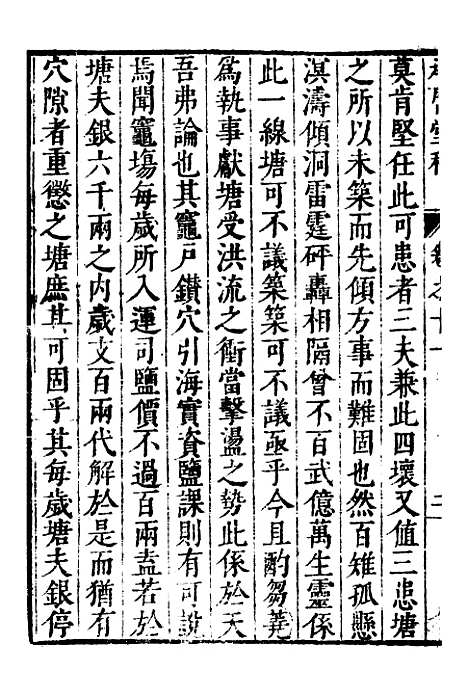 莫肯堅任此可患者三夫兼此四壞又值三患塘
之所以未築而先傾方事而難固也然百雉孤懸
溟濤傾洞雷霆砰轟相隔曾不百武億萬生靈係
此一線塘可不議築築可不議亟乎今且酌芻蕘
爲執事獻塘受洪流之衝當擊盪之勢此係於天
吾弗論也其竈戸鑚穴引海實資鹽課則有可說
焉聞竈塲每歲所入運司鹽價不過百兩葢若於
塘夫銀六千兩之内歲支百兩代解於是而猶有
穴隙者重懲之塘庶其可固乎其每歲塘夫銀停